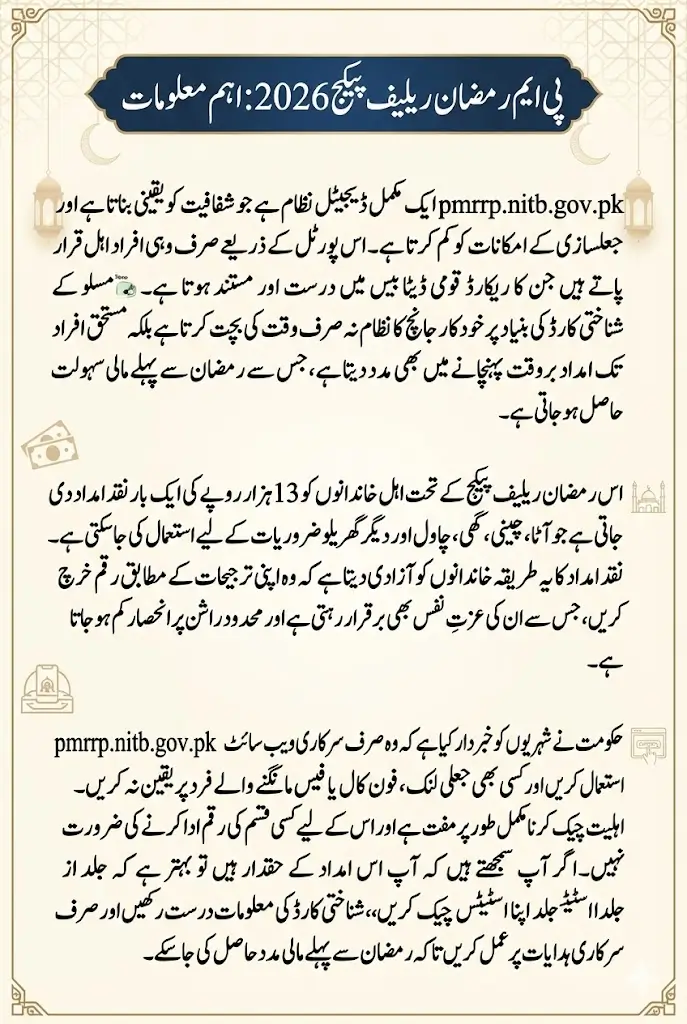 پی ایم رمضان ریلیف پیکج 2026: اہم معلومات
pmrrp.nitb.gov.pk ایک مکمل ڈیجیٹل نظام ہے جو شفافیت کو یقینی بناتا ہے اور
جعلسازی کے امکانات کو کم کرتا ہے۔ اس پورٹل کے ذریعے صرف وہی افراد اہل قرار
پاتے ہیں جن کا ریکارڈ قومی ڈیٹا بیس میں درست اور مستند ہوتا ہے۔ مسلو کے
شناختی کارڈ کی بنیاد پر خودکار جانچ کا نظام نہ صرف وقت کی بچت کرتا ہے بلکہ مستحق افراد
تک امداد بروقت پہنچانے میں بھی مدد دیتا ہے، جس سے رمضان سے پہلے مالی سہولت
حاصل ہو جاتی ہے۔
اس رمضان ریلیف پیکج کے تحت اہل خاندانوں کو 13 ہزار روپے کی ایک بار نقد امداد دی
جاتی ہے جو آٹا، چینی، گھی، چاول اور دیگر گھریلو ضروریات کے لیے استعمال کی جا سکتی ہے۔
نقد امداد کا یہ طریقہ خاندانوں کو آزادی دیتا ہے کہ وہ اپنی ترجیحات کے مطابق رقم خرچ
کریں، جس سے ان کی عزتِ نفس بھی برقرار رہتی ہے اور محدود راشن پر انحصار کم ہو جاتا
ہے۔
حکومت نے شہریوں کو خبردار کیا ہے کہ وہ صرف سرکاری ویب سائٹ pmrrp.nitb.gov.pk
استعمال کریں اور کسی بھی جعلی لنک، فون کال یا فیس مانگنے والے فرد پر یقین نہ کریں۔
اہلیت چیک کرنا مکمل طور پر مفت ہے اور اس کے لیے کسی قسم کی رقم ادا کرنے کی ضرورت
نہیں۔ اگر آپ سمجھتے ہیں کہ آپ اس امداد کے حقدار ہیں تو بہتر ہے کہ جلد از
جلد جلد اپنا اسٹیٹس چیک کریں،، شناختی کارڈ کی معلومات درست رکھیں اور صرف
سرکاری ہدایات پر عمل کریں تاکہ رمضان سے پہلے مالی مدد حاصل کی جا سکے۔